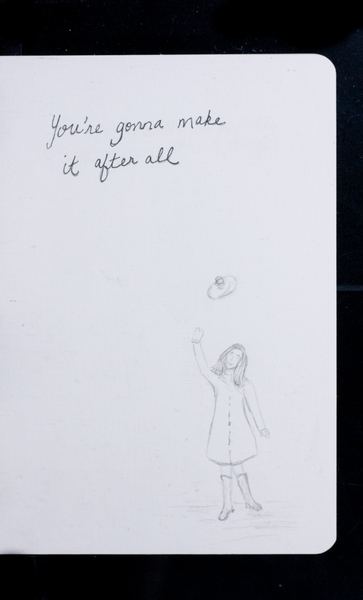 You're gonna make
it after all